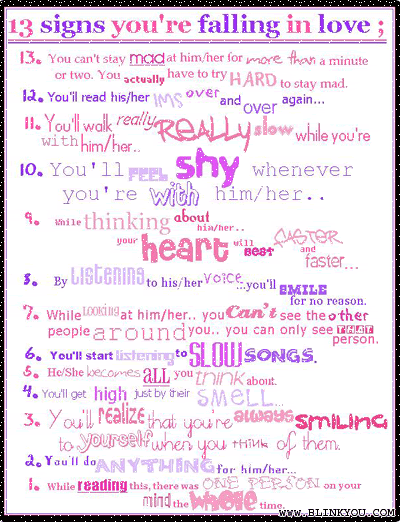 13 signs you're falling in love ;
13. You can't stay mad at him/her for more than a minute
or two. You actually have to try HARD to stay mad.
12. You'll read his/her IMS over and over again...
11. You'll walk really REALLY slow while you're
with him/her..
10. You'll FEEL shy whenever
you're with him/her..
9. While thinking about him/her..
your heart will BEAT FASTER and faster...
8. By listening to his/her voice...you'll SMILE
for no reason.
7. While LOOKING at him/her.. you Can't see the other
people around you.. you can only see THAT
person.
6. You'll start listening to SLOW SONGS.
5. He/She becomes ALL you think about.
4. You'll get high just by their SMELL...
3. You'll realize that you're always smiling
to yourself when you think of them.
2. You'll do ANYTHING for him/her...
1. While reading this, there was ONE PERSON on your
mind the whole time.
WWW.BLINKYOU.COM